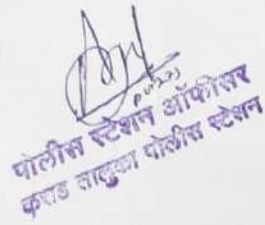 पोलीस स्टेशन ऑफीसर
कराड तालुका पोलीस स्टेशन